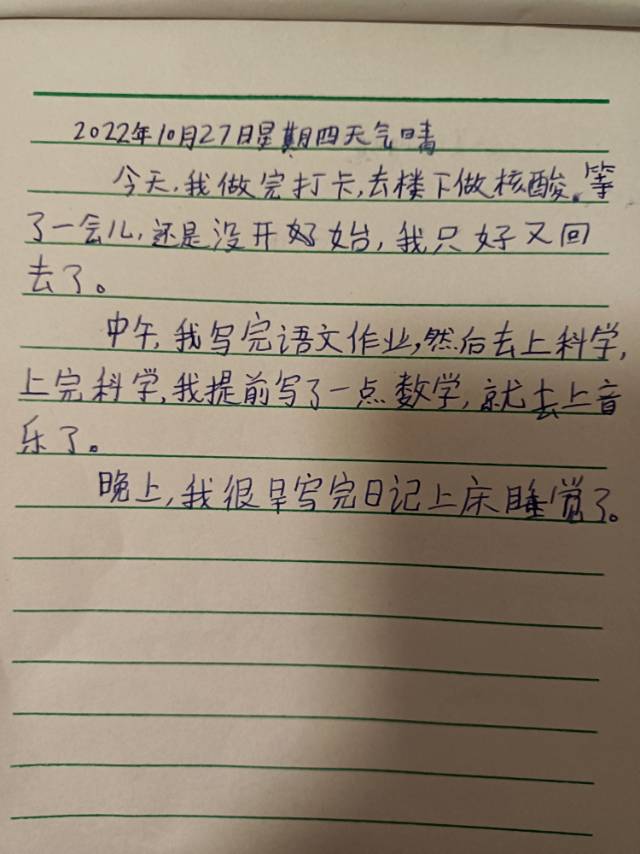 2022年10月27日星期四天气晴
今天,我做完打卡,去楼下做核酸。等
了一会儿,还是没开始,我只好又回
去了。
中午,我写完语文作业,然后去上科学,
上完科学,我提前写了一点数学,就去上音
乐了。
晚上,我很早写完日记上床睡觉了。